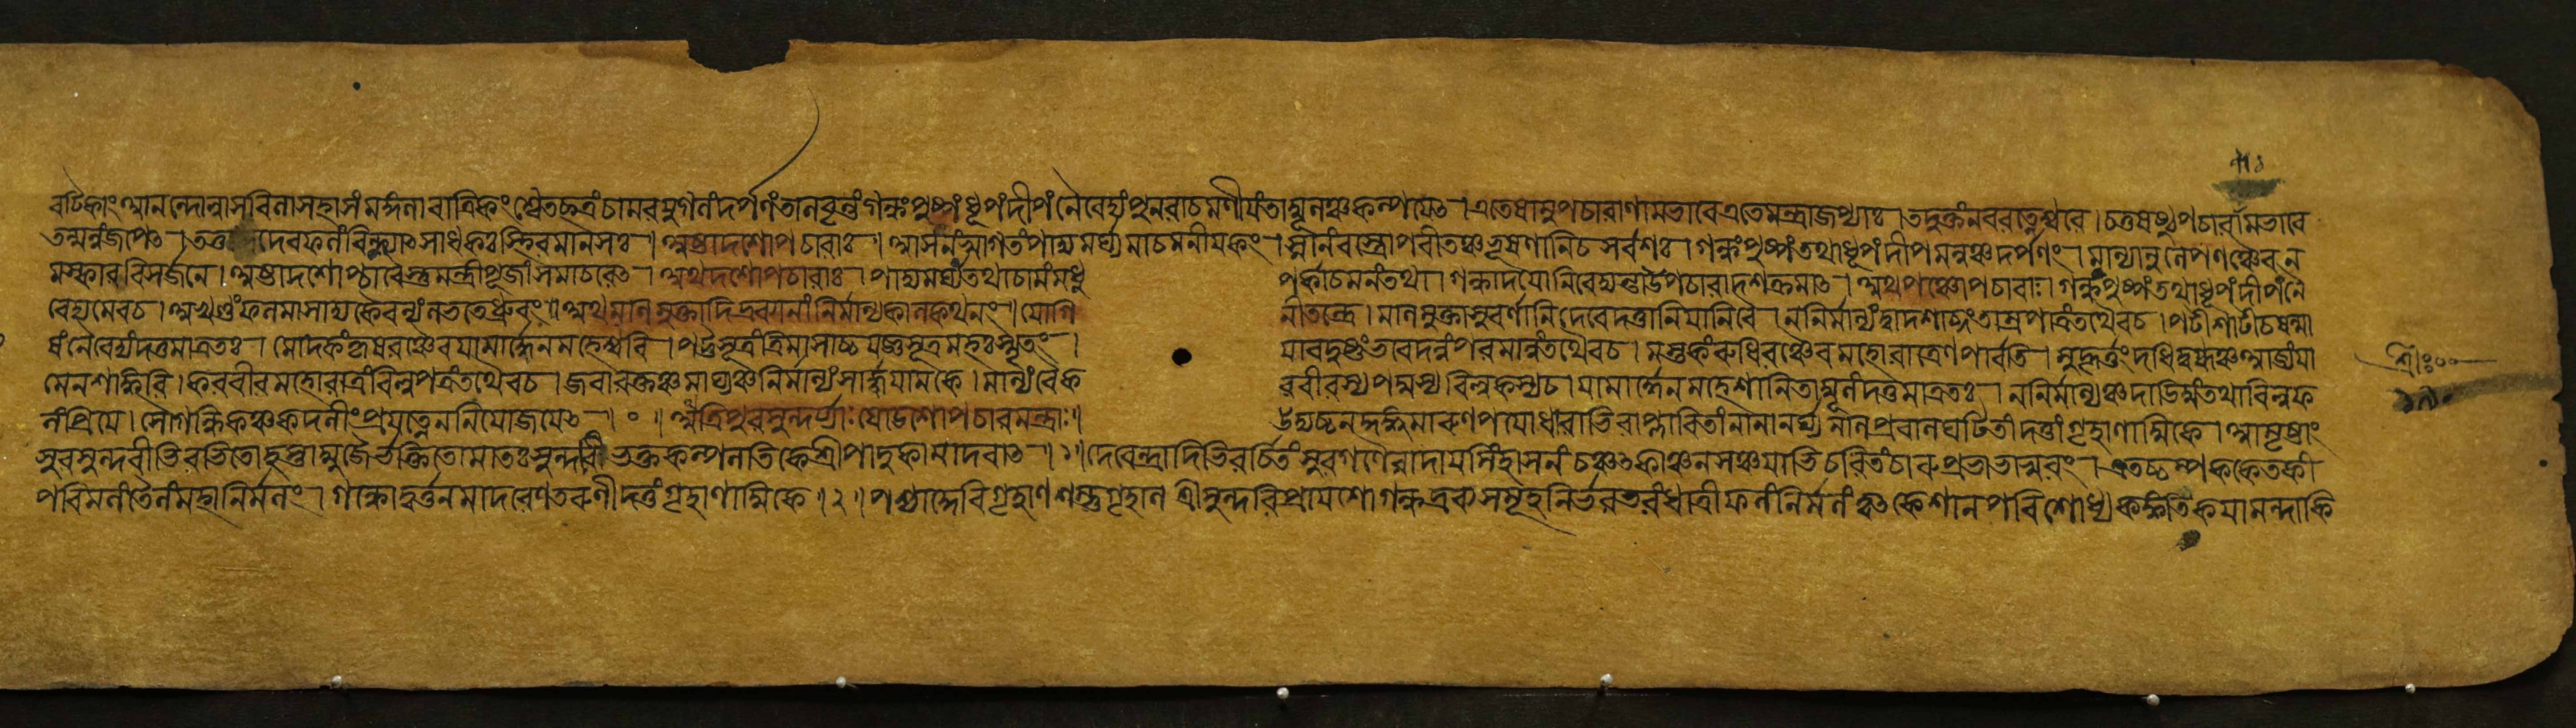 বটিকাং আনন্দোল্লাসবিলাসহাসং মঙ্গলারাত্রিকং শ্বেতচ্ছত্রং চামরযুগলং দর্পণং তালবৃন্তং গন্ধং পুষ্পং ধূপং দীপং নৈবেদ্যং পুনরাচমনীয়ং তাম্বূলঞ্চ কল্পয়েৎ । এতেষামুপচারাণামভাবে এতে মন্ত্রা জপ্যাঃ । তদুক্তং নবরত্নেশ্বরে । চতুঃষষ্ট্যুপচারাণামভাবে
তন্মন্ত্রং জপেৎ । তত্ত দেব ফলং বিন্দ্যাৎ সাধকঃ স্থিরমানসঃ । অষ্টাদশোপচারাঃ । আসনং স্বাগতং পাদ্যমর্ঘ্যমাচমনীয়কং । স্নানং বস্ত্রোপবীতঞ্চ ভূষণানি চ সর্বশঃ । গন্ধং পুষ্পং তথা ধূপং দীপমন্নঞ্চ দর্পণং । মাল্যানুলেপনঞ্চৈব ন
মস্কারবিসর্জনে । অষ্টাদশোপচারৈস্তু মন্ত্রী পূজাং সমাচরেৎ । অথ দশোপচারাঃ । পাদ্যমর্ঘ্যং তথাচামং মধু পর্কাচমনং তথা । গন্ধাদয়ো নিবেদ্যান্তা উপচারা দশ ক্রমাৎ । অথ পঞ্চোপচারাঃ । গন্ধং পুষ্পং তথা ধূপং দীপং নৈ
বেদ্যমেব চ । অখণ্ডং ফলমাসাদ্য কৈবল্যং লভতে ধ্রুবং ॥ অথ মণিমুক্তাদিদ্রব্যানাং নির্মাল্যকালকথনং । যোগি নীতন্ত্রে । মণিমুক্তাসুবর্ণানি দেবে দত্তানি যানি বৈ । ন নির্মাল্যং দ্বাদশাব্দং তাম্রপাত্রং তথৈব চ । পটী শাটী চ ষণ্মা
ষং নৈবেদ্যং দত্তমাত্রতঃ । মোদকং কৃষরঞ্চৈব যামার্দ্ধেন মহেশ্বরি । পট্টসূত্রং ত্রিমাসাচ্চ যজ্ঞসূত্রমহঃ স্মৃতং । যাবদুষ্ণং ভবেদন্নং পরমান্নং তথৈব চ । মস্তকং রুধিরঞ্চৈব অহোরাত্রেণ পার্বতি । মুহূর্ত্তং দধি দুগ্ধঞ্চ আজ্যং যা
মেন শাঙ্করি । করবীরমহোরাত্রং বিল্বপত্রং তথৈব চ । জবা রক্তঞ্চ মাঘ্যঞ্চ নির্মাল্যং সার্দ্ধযামকে । মাল্যং বৈ ক রবীরস্য পদ্মস্য বিল্বকস্য চ । যামার্দ্ধেন মহেশানি তাম্বূলং দত্তমাত্রতঃ । ন নির্মাল্যঞ্চ দাড়িম্বং তথা বিল্বফ
লং প্রিয়ে । সৌগন্ধিকঞ্চ কদলীং প্রযত্নেন নিয়োজয়েৎ ॥ ০ ॥ অথ ত্রিপুরসুন্দর্য্যাঃ ষোড়শোপচারমন্ত্রাঃ । উদ্যচ্চন্দনকুঙ্কুমারুণপয়োধারাভিরাপ্লাবিতাং নানানর্ঘ্যমণিপ্রবালঘটিতাং দত্তাং গৃহাণাম্বিকে । আমৃষ্টাং
সুরসুন্দরীভিরভিতো হস্তাম্বুজৈর্ভক্তিতো মাতঃ সুন্দরি ভক্তকল্পলতিকে শ্রীপাদুকামাদরাৎ । ১ । দেবেন্দ্রাদিভিরর্চিতং সুরগণৈরাদায় সিংহাসনং চঞ্চৎকাঞ্চনসঞ্চয়াভিরচিতং চারুপ্রভাভাস্বরং । এতচ্চম্পককেতকী
পরিমলং তৈলং মহানির্মলং । গন্ধোদ্বর্ত্তনমাদরেণ তরুণীদত্তং গৃহাণাম্বিকে । ২ । পশ্চাদ্দেবি গৃহাণ শম্ভুগৃহিণি শ্রীসুন্দরি প্রায়শো গন্ধদ্রব্যসমূহনির্ভরতরং ধাত্রীফলং নির্মলং তৎ কেশান্ পরিশোধ্য কঙ্কতিকয়া মন্দাকি